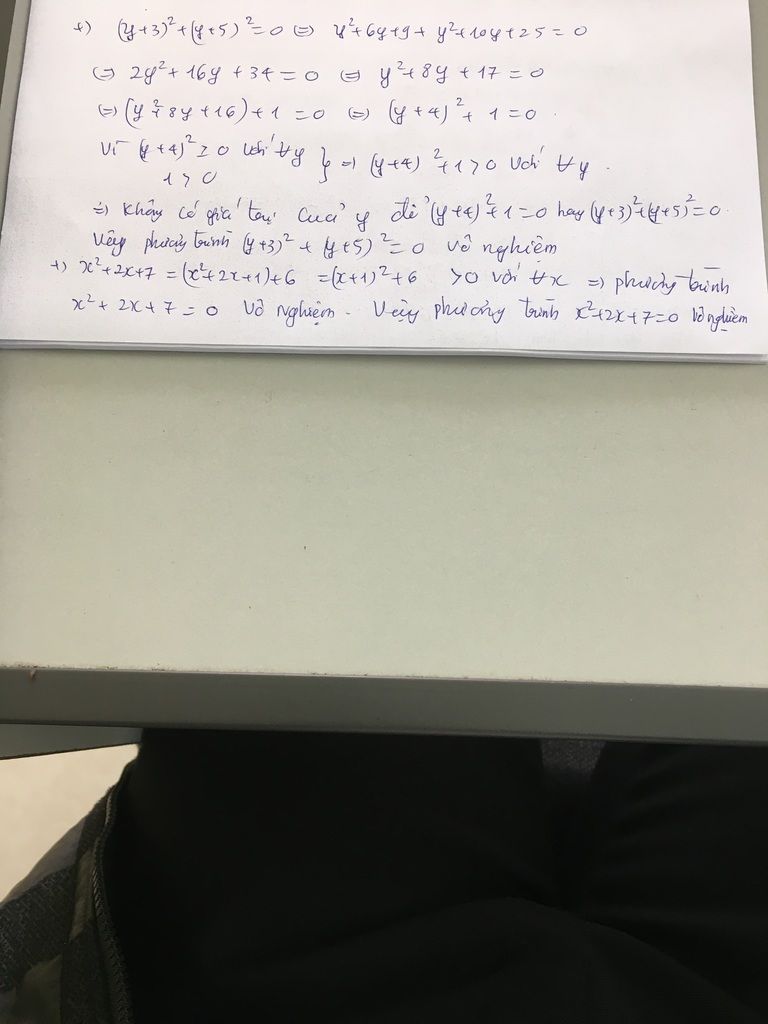 +) (y+3)²+(y+5)²=0 (=) y²+6y+9+ y²+10y+25=0
(=) 2y²+16y+34=0 (=) y²+8y+17=0
(=) (y²+8y+16)+1=0 (=) (y+4)²+1=0.
Vì (y+4)²≥0 với ∀y } =) (y+4)²+1>0 với ∀y.
1>0
=) Không có giá trị của y để (y+4)²+1=0 hay (y+3)²+(y+5)²=0.
Vậy phương trình (y+3)²+(y+5)²=0 vô nghiệm
+) x²+2x+7=(x²+2x+1)+6 =(x+1)²+6 >0 với ∀x =) phương trình
x²+2x+7=0 vô nghiệm. Vậy phương trình x²+2x+7=0 vô nghiệm